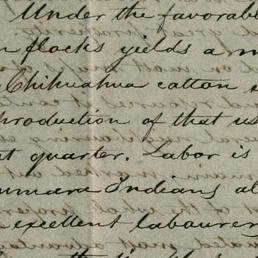 Under the favorabl
flocks yields a m
Chihuahua catton
production of that us
t quarter. Labor is
umara Indians al
excellent labourer